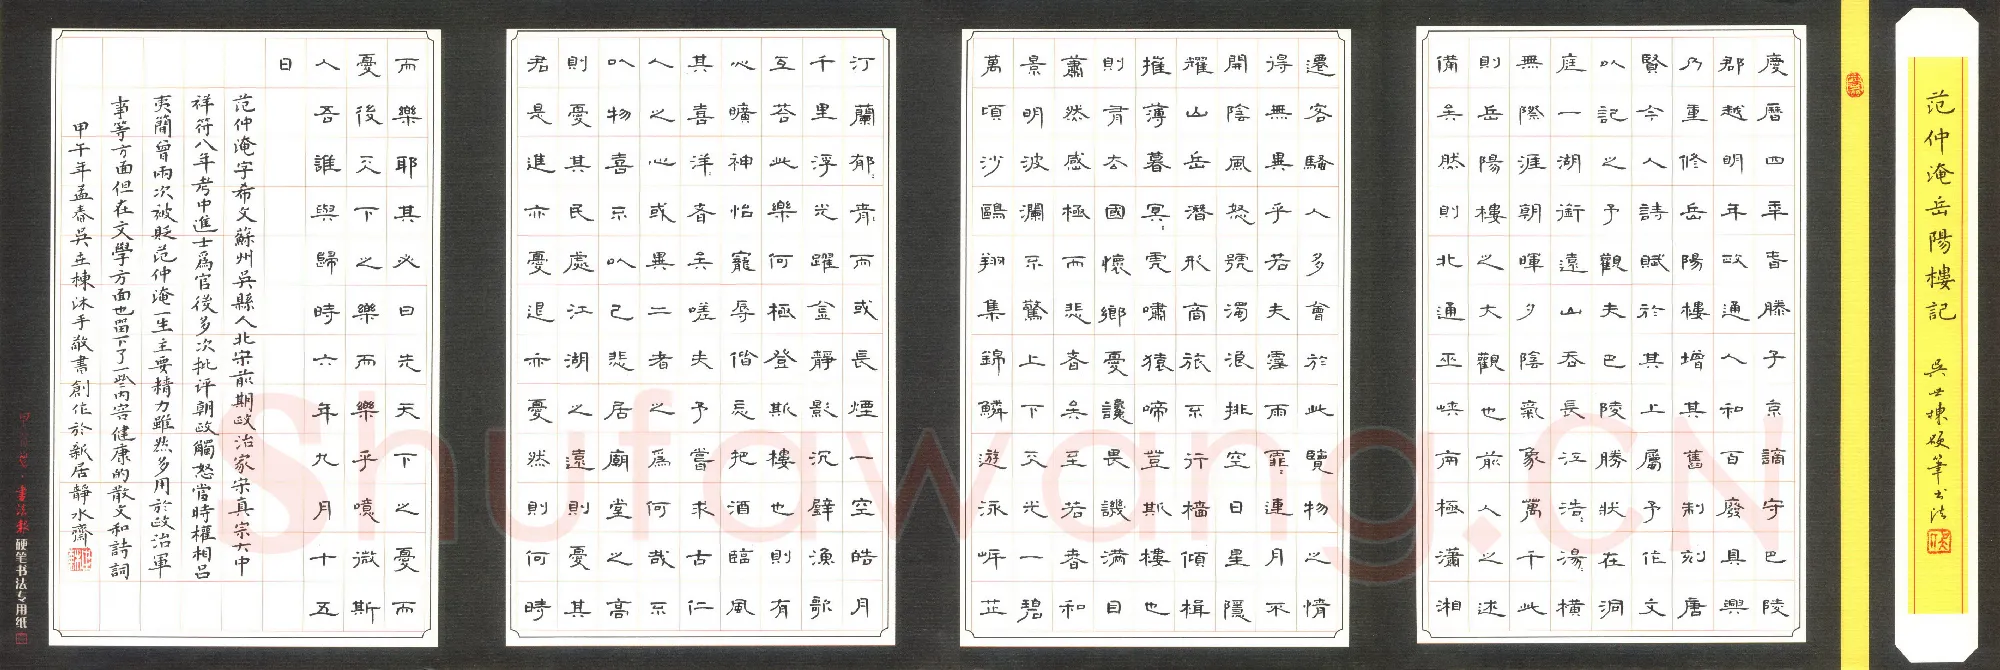 范仲淹岳陽樓記 吳世棟硬筆書法
慶曆四年春滕子京謫守巴陵
郡越明年政通人和百廢具興
乃重修岳陽樓增其舊制刻唐
賢今人詩賦於其上屬予作文
以記之予觀夫巴陵勝狀在洞
庭一湖銜遠山吞長江浩:湯:橫
無際涯朝暉夕陰氣象萬千此
則岳陽樓之大觀也前人之述
備矣然則北通巫峽南極瀟湘
遷客騷人多會於此覽物之情
得無異乎若夫霪雨霏:連月不
開陰風怒號濁浪排空日星隱
耀山岳潛形商旅不行檣傾楫
摧薄暮冥:虎嘯猿啼登斯樓也
則有去國懷鄉憂讒畏譏滿目
蕭然感極而悲者矣至若春和
景明波瀾不驚上下天光一碧
萬頃沙鷗翔集錦鱗遊泳岸芷
汀蘭郁:青:而或長煙一空皓月
千里浮光躍金靜影沉璧漁歌
互荅此樂何極登斯樓也則有
心曠神怡寵辱偕忘把酒臨風
其喜洋:者矣嗟夫予嘗求古仁
人之心或異二者之為何哉不
以物喜不以己悲居廟堂之高
則憂其民處江湖之遠則憂其
君是進亦憂退亦憂然則何時
而樂耶其必曰先天下之憂而
憂後天下之樂而樂乎噫微斯
人吾誰與歸時六年九月十五
日
范仲淹字希文蘇州吳縣人北宋前期政治家宋真宗大中
祥符八年考中進士爲官後多次批評朝政觸怒當時權相呂
夷簡曾兩次被貶范仲淹一生主要精力雖然多用於政治軍
事等方面但在文學方面也留下了一些內容健康的散文和詩詞
甲午年孟春吳世棟沐手敬書創作於新居靜水齋
書法報·硬笔书法专用纸
Shufawang.CN